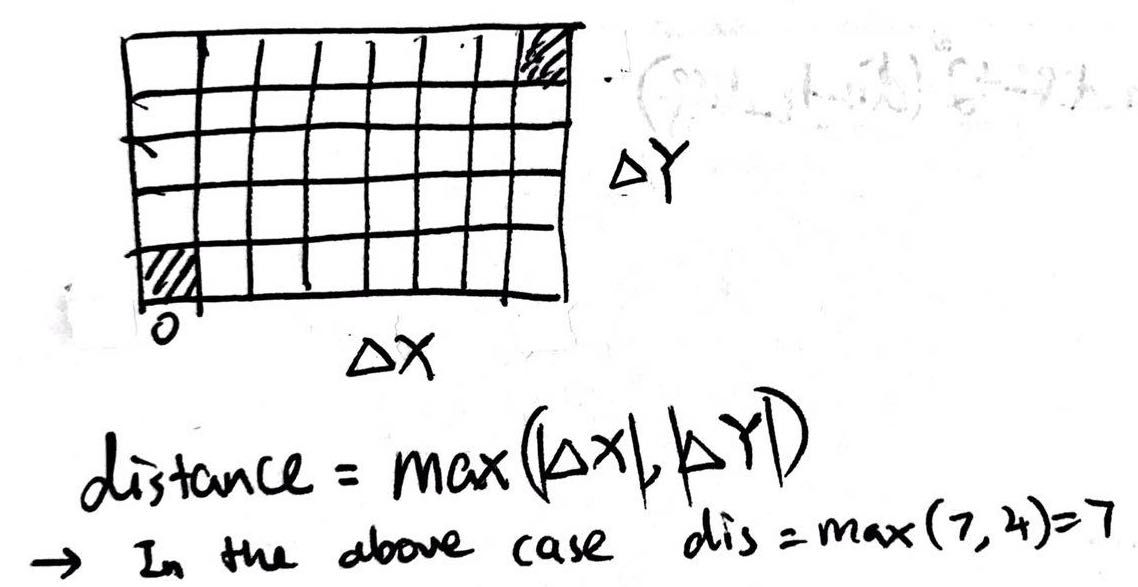 ΔY
0
ΔX
distance = max(|ΔX|, |ΔY|)
→ In the above case dis = max(7, 4)=7